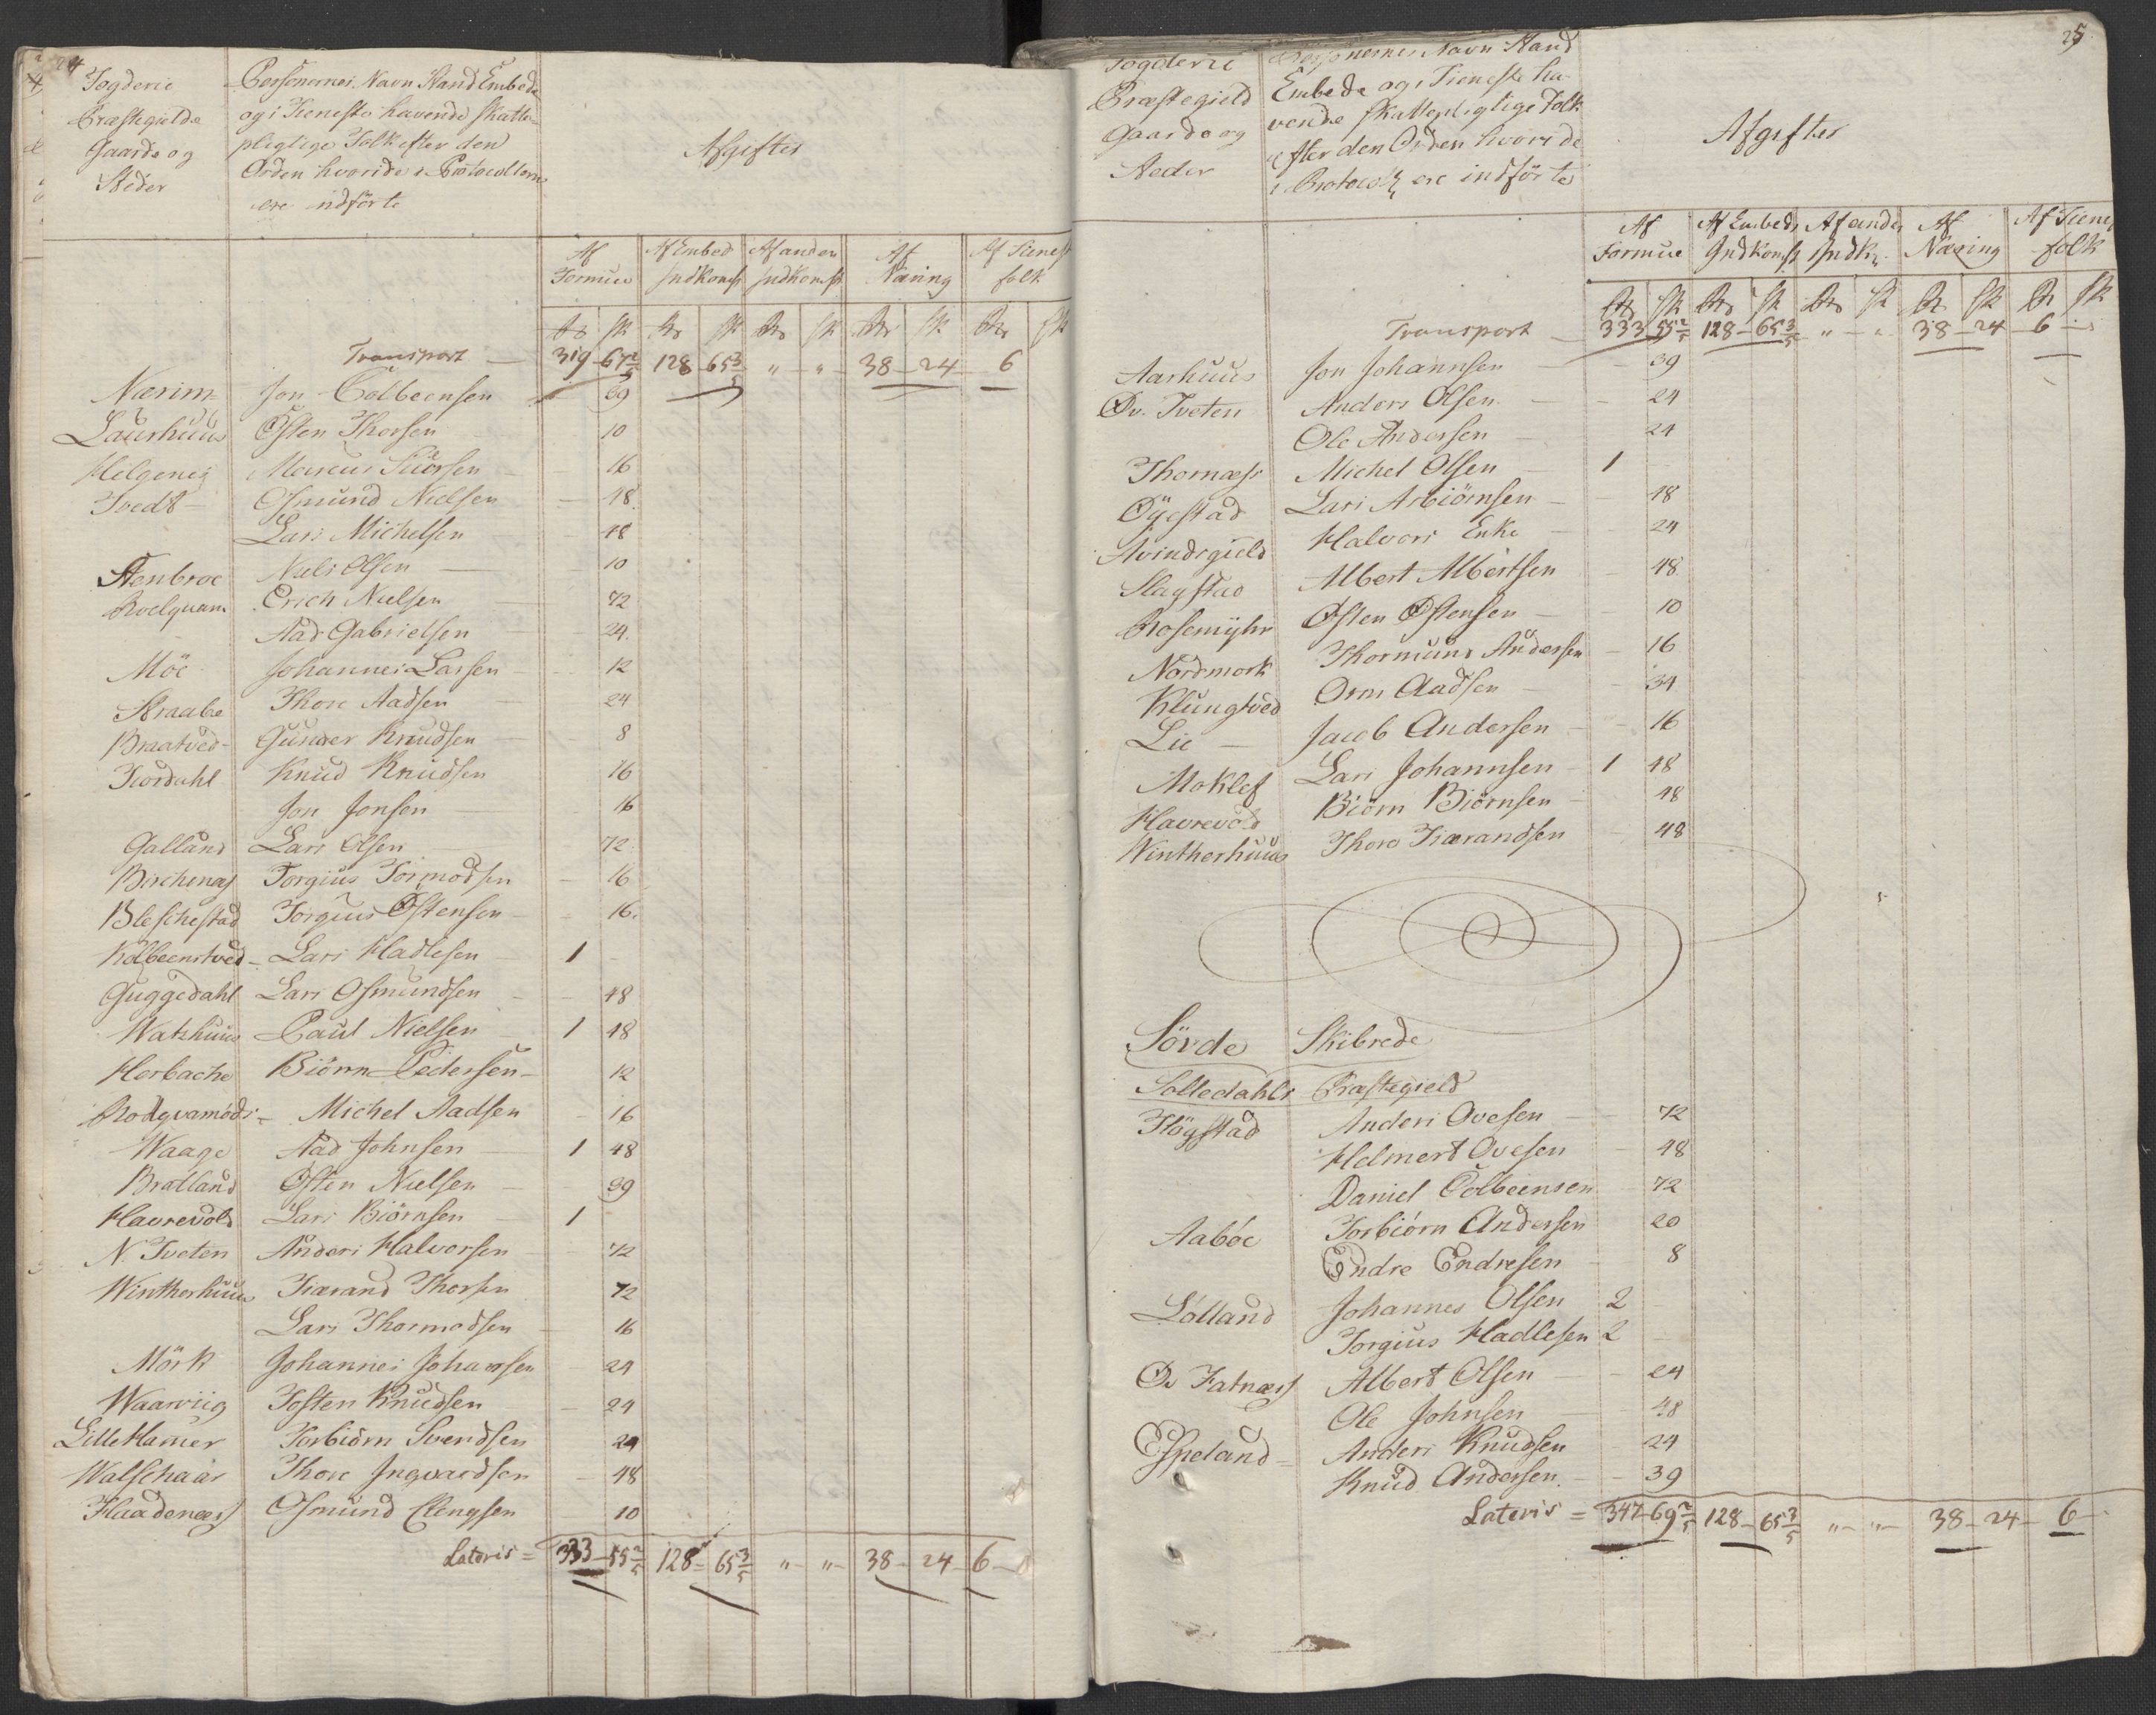 24
Fogderie
Præstegielde
Gaarde og
Stæder
Personernes Navn Stand Embede
og i Tieneste havende skatte
pligtige Folk efter den
Orden hvori de i Protocollerne
ere indförte
Afgifter
Af Formue | Af Embed Indkomst | Af anden Indkomst | Af Næring | Af Tienest folk
Rd Sk Rd Sk Rd Sk Rd Sk Rd Sk
Transport — 319 - 67 2/5 128 - 65 3/5 " - " - 38 - 24 - 6
Nærim Jon Colbeensen 39
Laurhuus Östen Thorsen 10
Helgenes Marcus Siursen 16
Tvedt Osmund Nielsen 48
Lars Michelsen 48
Stenbroe Niels Olsen 10
Roelquam Erich Nielsen 72
Aad Gabrielsen 24
Möe Johannes Larsen 12
Straabe Thore Aadsen 24
Braatved Gunder Knudsen 8
Fiordahl Knud Knudsen 16
Jon Jonsen 16
Galland Lars Olsen 72
Birchenæs Torgius Tormodsen 16
Bleschestad Torgius Östensen 16
Kolbeenstved Lars Hadlesen 1
Guggedahl Lars Osmundsen 48
Watshuus Paul Nielsen 1 48
Horbache Biörn Pedersen 12
Rodqvamöds Michel Aadsen 16
Waage Aad Johnsen 1 48
Bratland Östen Nielsen 39
Havrevold Lars Biörnsen 1
N. Tveten Anders Halvorsen 72
Wintherhuus Tiærand Thorsen 72
Lars Thormodsen 16
Mörk Johannes Johansen 24
Waarviig Tosten Knudsen 24
Lille Hamer Torbiörn Svendsen 24
Walschaar Thore Ingvardsen 48
Flaadenæss Osmund Elengsen 10
Lateris = 333 - 55 2/5 128 - 65 3/5 " - " - 38 - 24 - 6
25
Fogderie
Præstegield
Gaarde og
Steder
Personernes Navn Stand
Embede og i Tieneste ha-
vende skattepligtige Folk
efter den Orden hvori de
i Protocoll ere indförte
Afgifter
Af Formue | Af Embeds Indkomst | Af anden Indk. | Af Næring | Af Tienest folk
Rd Sk Rd Sk Rd Sk Rd Sk Rd Sk
Transport — 333 55 2/5 128 - 65 3/5 " - " 38 - 24 - 6
Aarhuus Jon Johannsen 39
Öv. Tveten Anders Olsen 24
Ole Andersen 24
Thomæss Michel Olsen 1
Öyestad Lars Asbiörnsen 48
Avindsgield Halvors Enke 24
Slagstad Albert Albertsen 48
Rosemyhr Östen Östensen 10
Nordmork Thormund Andersen 16
Klungtved Orm Aadsen 34
Lie Jacob Andersen 16
Moklef Lars Johannsen 1 48
Havrevold Biörn Biörnsen 48
Wintherhuus Thore Tiærandsen 48
Sörde Skibrede
Solledahls Præstegield
Högstad Anders Ovesen 72
Helmert Ovesen 48
Daniel Colbeensen 72
Aaböe Torbiörn Andersen 20
Endre Endresen 8
Lölland Johannes Olsen 2
Torgius Hadlesen 2
Öv Fatnæss Albert Olsen 24
Ole Johnsen 48
Espeland Anders Knudsen 24
Knud Andersen 39
Lateris = 347 - 69 2/5 128 - 65 3/5 " - " - 38 - 24 - 6